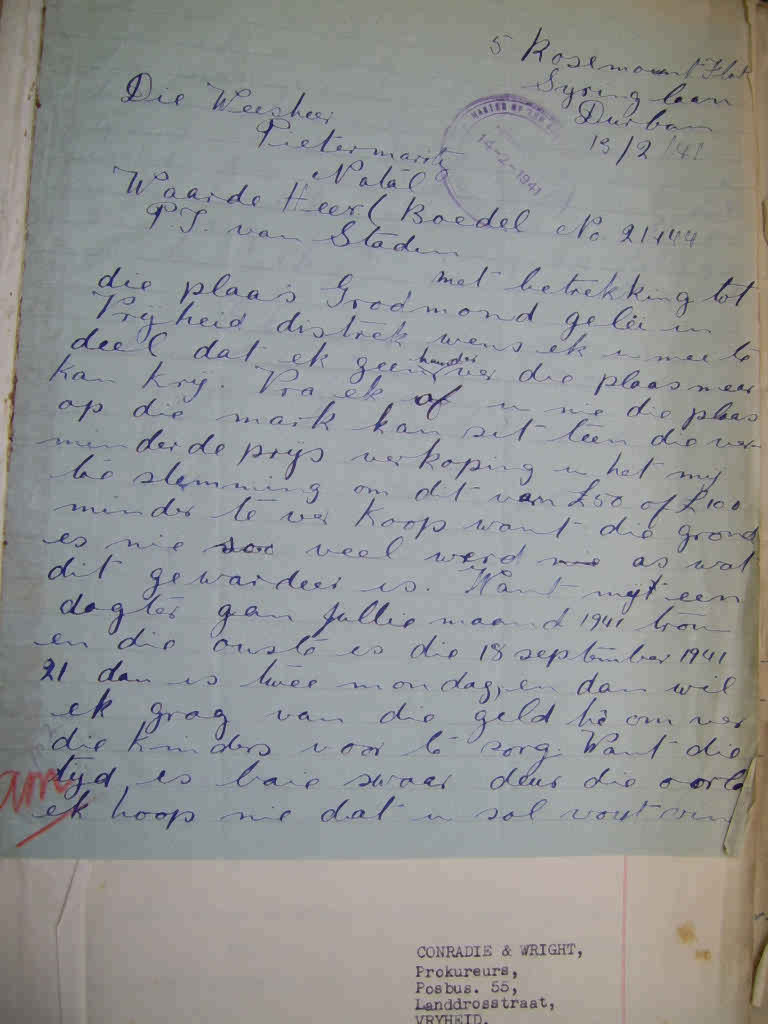 5 Rosemount Flat
Syring laan
Durban
13/2/41
Die Weesheer
Pietermaritz
Natal
MASTER OF THE
14-2-1941
Waarde Heer (Boedel No. 21444
P.J. van Staden
met betrekking tot
die plaas Grodmond geleë in
Vrijheid distrek wens ek u mee te
deel dat ek geen huurder ver die plaas meer
kan krij. Vra ek of u nie die plaas
op die mark kan set teen die ver
minderde prijs verkoping u het mij
be stemming om dit van £50 of £100
minder te ver koop want die grond
es nie soo veel werd nie as wat
dit gewardeer is. Want mijt een
dagter gan Jullie maand 1941 trou
en die ouste is die 18 september 1941
21 dan is twee mondag, en dan wil
ek grag van die geld hê om ver
die kinders voor te sorg. Want die
tyd is baie swaar deur die oorlo
ek hoop nie dat u sal
CONRADIE & WRIGHT,
Prokureurs,
Posbus. 55,
Landdrosstraat,
VRYHEID.